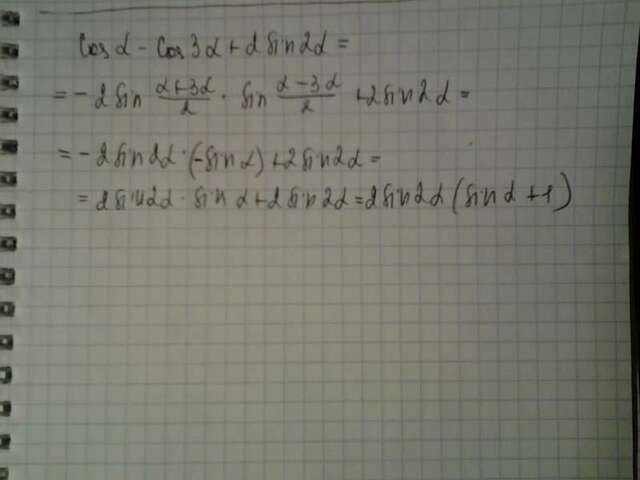 cos α - cos 3α + 2 sin 2α =
= - 2 sin (α+3α)/2 · sin (α-3α)/2 + 2 sin 2α =
= - 2 sin 2α · (-sin α) + 2 sin 2α =
= 2 sin 2α · sin α + 2 sin 2α = 2 sin 2α (sin α + 1)